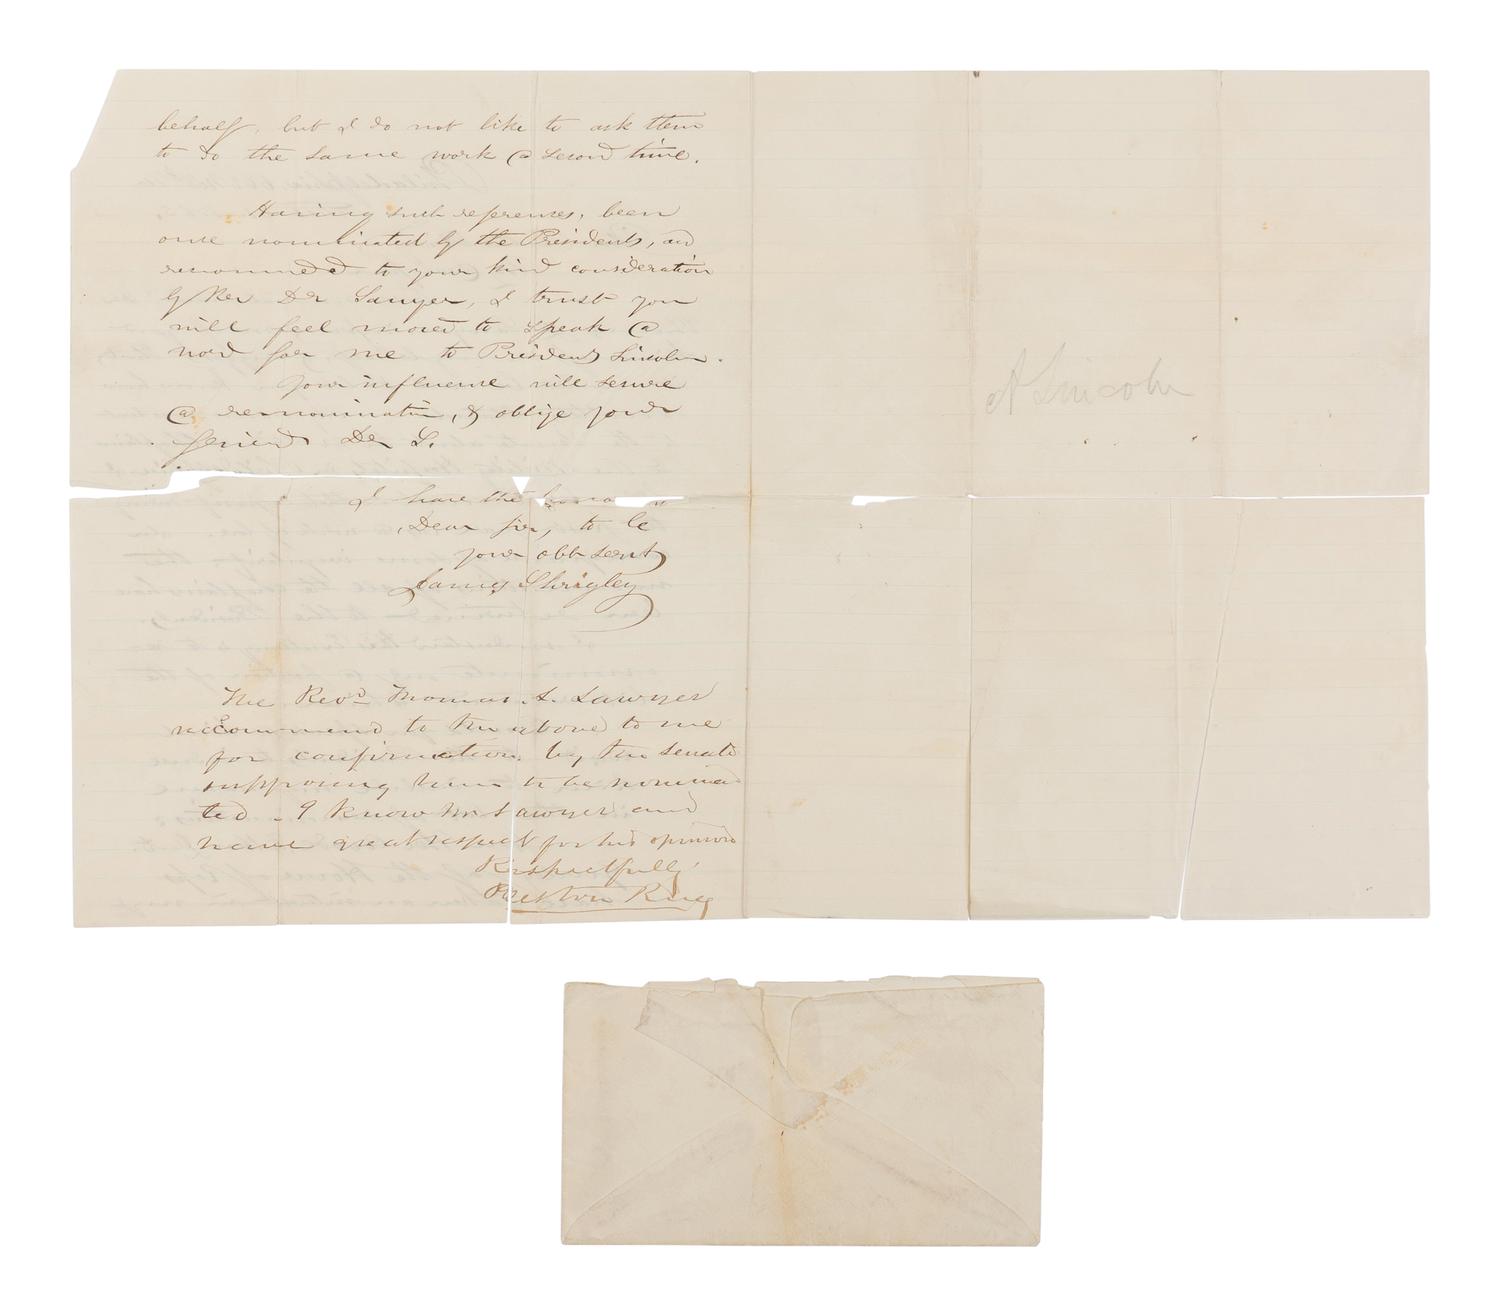 behalf, but I do not like to ask them
to do the same work a second time.
Having such references, been
once nominated by the President, and
recommended to your kind consideration
by Rev Dr Sawyer, I trust you
will feel moved to speak a
word for me to President Lincoln.
Your influence will secure
a renomination, & oblige your
friend Dr S.
I have the honor
Dear Sir, to be
your obt servt
James Shrigley
The Revd Thomas J. Sawyer
recommend to the above to me
for confirmation by the Senate
supposing him to be nomina
ted - I know Mr Sawyer and
have great respect for his opinions
Respectfully
Preston King
A Lincoln